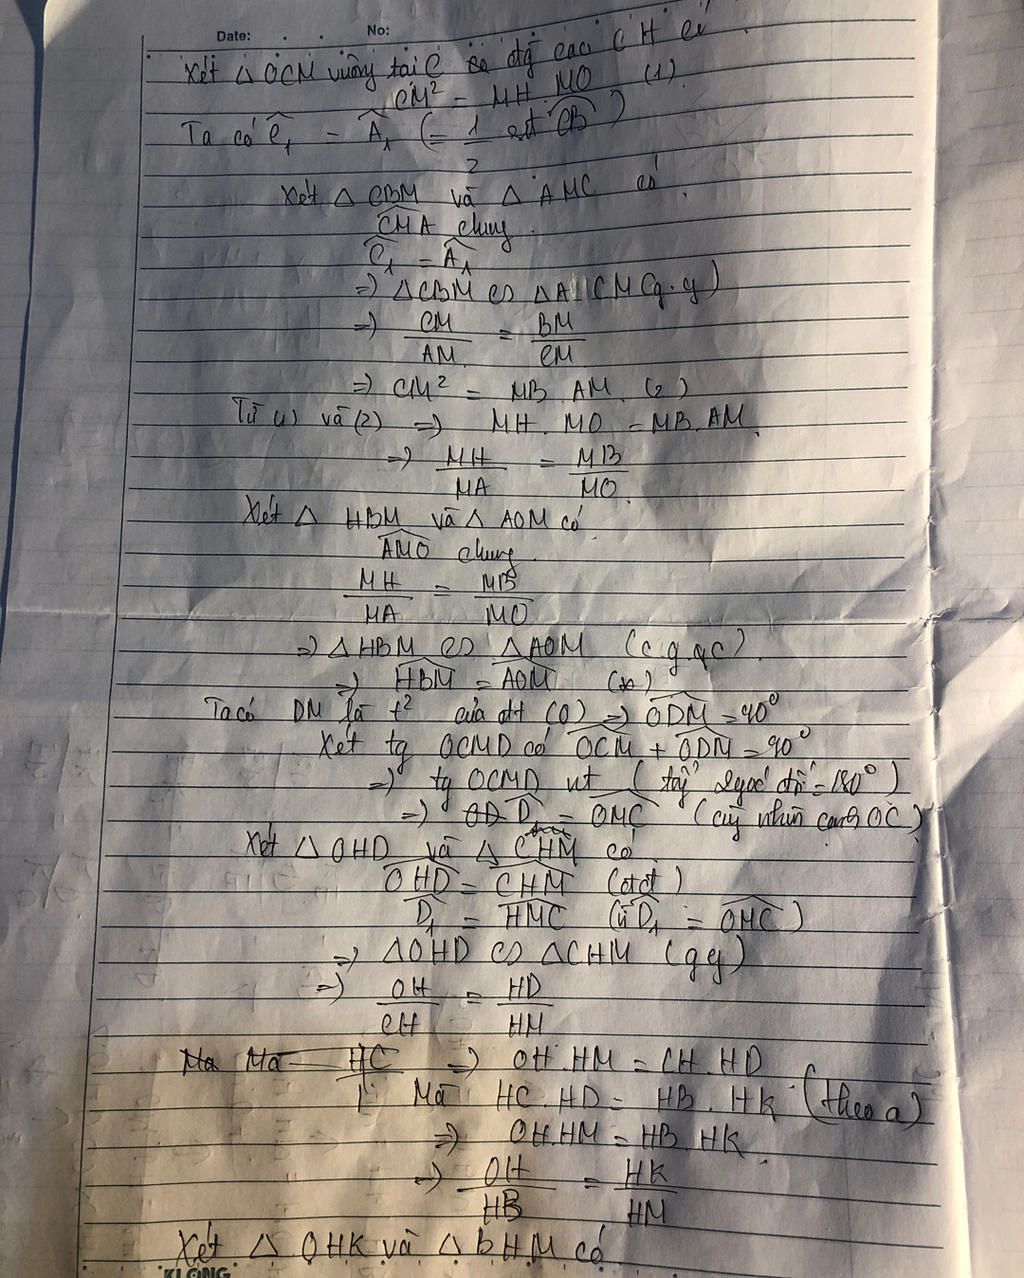 Date: . . No:
Xét △ OCM vuông tại C có đg cao CH có
CM² = MH MO (1).
Ta có Ĉ₁ = Â₁ (= 1/2 sđ CB)
Xét △ CBM và △ AMC có.
CMA chung.
Ĉ₁ = Â₁
=> △CBM ∽ △A CM (g.g)
=> CM/AM = BM/CM
=> CM² = MB AM. (2)
Từ (1) và (2) => MH. MO = MB. AM.
=> MH/MA = MB/MO.
Xét △ HBM và △ AOM có
AMO chung.
MH/MA = MB/MO
=> △HBM ∽ △AOM (c.g.c).
=> HBM = AOM (*)
Ta có DM là t² của đt (O) => ODM = 90°
Xét tg OCMD có OCM + ODM = 90°
=> tg OCMD nt (tổng 2 góc đối = 180°)
=> D̂₁ = OMC (cùng nhìn cạnh OC)
Xét △ OHD và △ CHM có
OHD = CHM (đđ)
D̂₁ = HMC (vì D̂₁ = OMC)
=> △OHD ∽ △CHM (gg)
=> OH/CH = HD/HM
Ma Ma HC => OH.HM = CH.HD
Mà HC.HD = HB. HK (theo a)
=> OH.HM = HB.HK.
=> OH/HB = HK/HM
Xét △ OHK và △ BHM có
KLONG